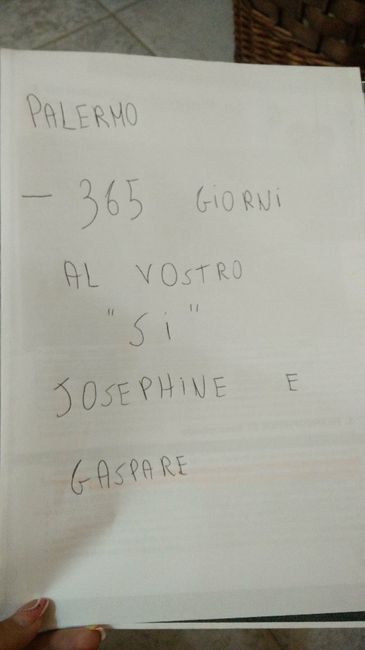 PALERMO
- 365 GIORNI
AL VOSTRO
"Si"
JOSEPHINE E
GASPARE